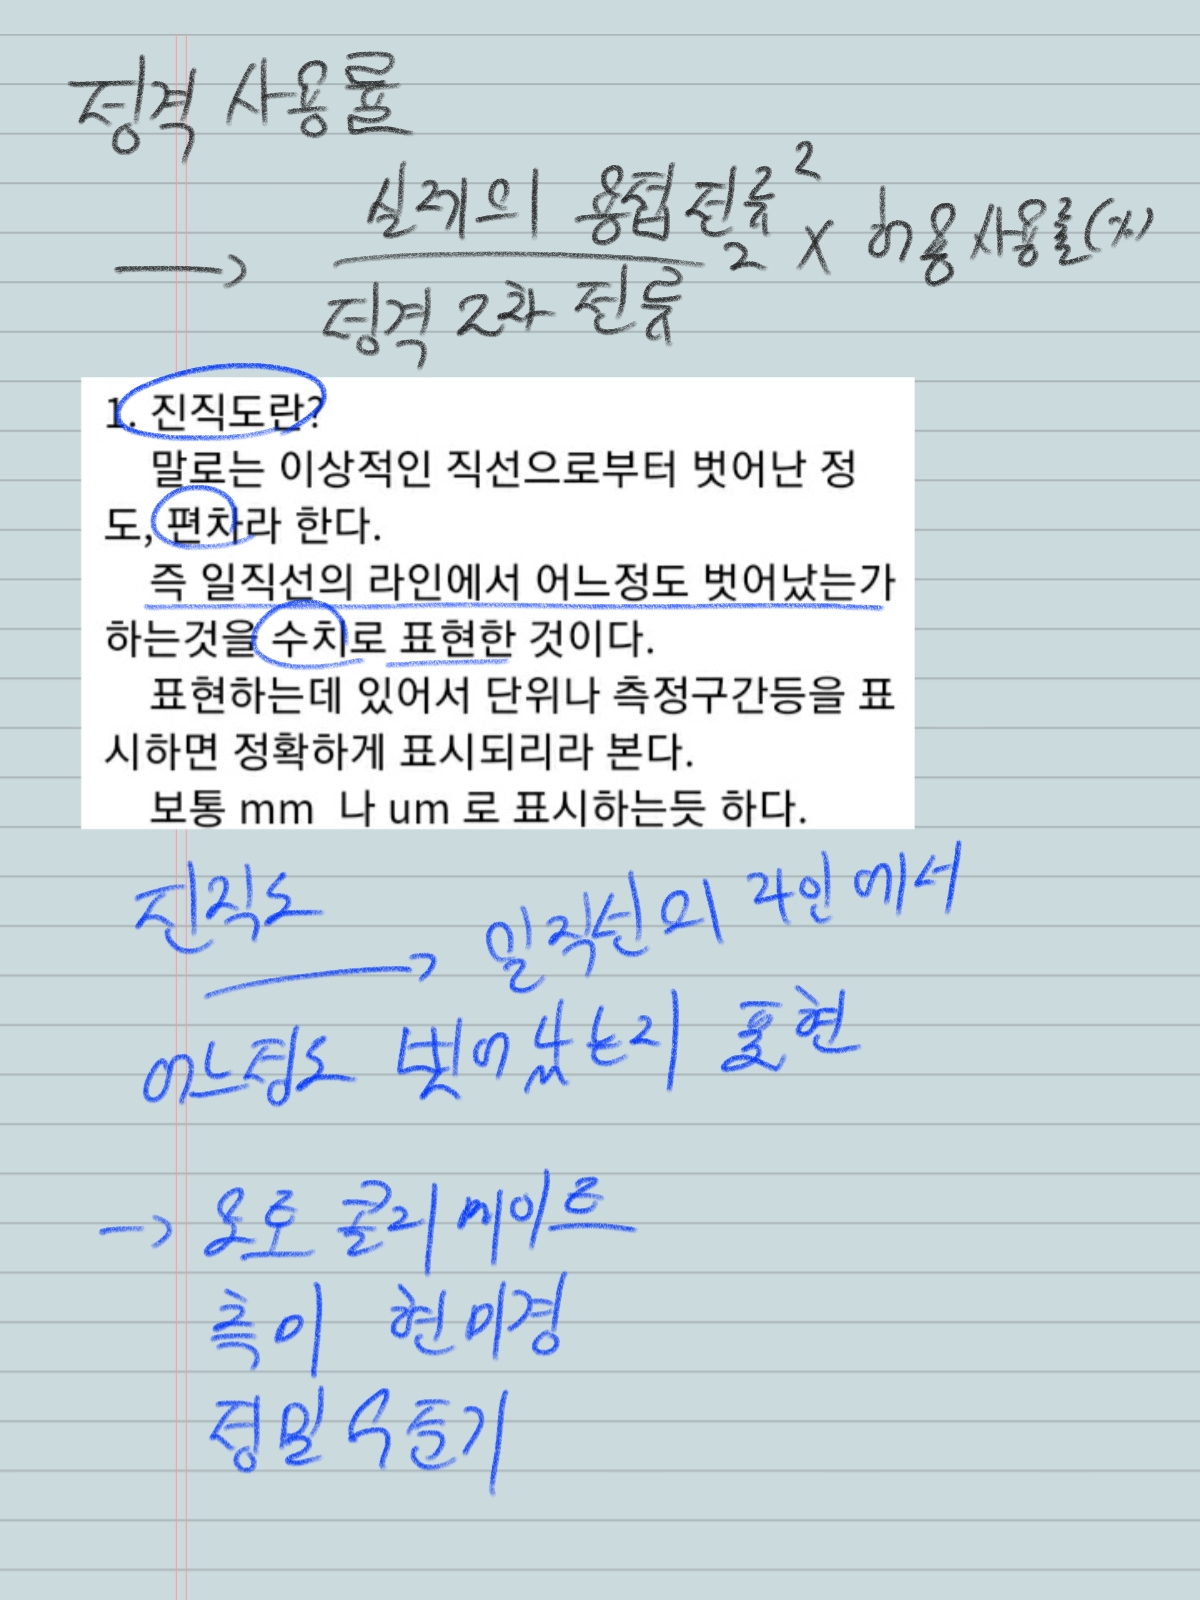 정격 사용률
→ 실제의 용접 전류²
정격 2차 전류² × 허용 사용률(%)
1. 진직도란?
말로는 이상적인 직선으로부터 벗어난 정
도, 편차라 한다.
즉 일직선의 라인에서 어느정도 벗어났는가
하는것을 수치로 표현한 것이다.
표현하는데 있어서 단위나 측정구간등을 표
시하면 정확하게 표시되리라 본다.
보통 mm 나 um 로 표시하는듯 하다.
진직도
→ 일직선의 라인에서
어느정도 벗어났는지 표현
→ 오토 콜리메이트
측미 현미경
정밀 수준기